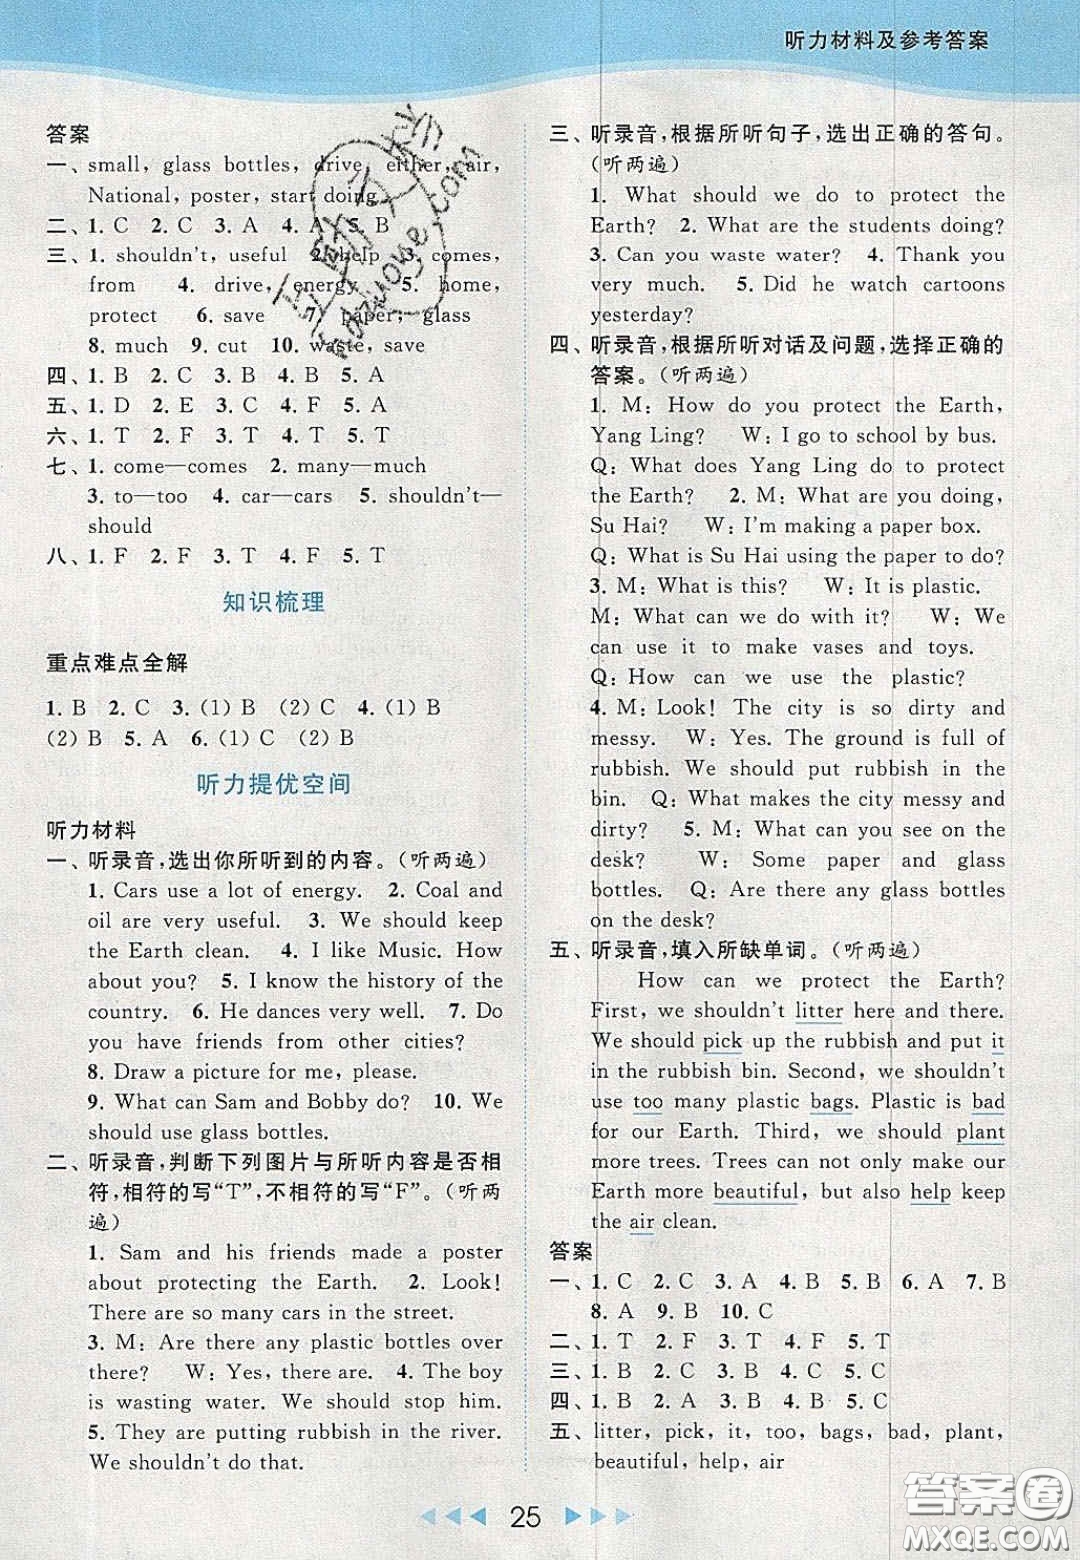 听力材料及参考答案
答案
一、small, glass bottles, drive, either, air,
National, poster, start doing
二、1. C 2. C 3. A 4. A 5. B
三、1. shouldn't, useful 2. help 3. comes,
from 4. drive, energy 5. home,
protect 6. save 7. paper, glass
8. much 9. cut 10. waste, save
四、1. B 2. C 3. B 4. B 5. A
五、1. D 2. E 3. C 4. F 5. A
六、1. T 2. F 3. T 4. T 5. T
七、1. come—comes 2. many—much
3. to—too 4. car—cars 5. shouldn't—
should
八、1. F 2. F 3. T 4. F 5. T
知识梳理
重点难点全解
1. B 2. C 3. (1) B (2) C 4. (1) B
(2) B 5. A 6. (1) C (2) B
听力提优空间
听力材料
一、听录音,选出你所听到的内容。(听两遍)
1. Cars use a lot of energy. 2. Coal and
oil are very useful. 3. We should keep
the Earth clean. 4. I like Music. How
about you? 5. I know the history of the
country. 6. He dances very well. 7. Do
you have friends from other cities?
8. Draw a picture for me, please.
9. What can Sam and Bobby do? 10. We
should use glass bottles.
二、听录音,判断下列图片与所听内容是否相
符,相符的写“T”,不相符的写“F”。(听两
遍)
1. Sam and his friends made a poster
about protecting the Earth. 2. Look!
There are so many cars in the street.
3. M: Are there any plastic bottles over
there? W: Yes, there are. 4. The boy
is wasting water. We should stop him.
5. They are putting rubbish in the river.
We shouldn't do that.
三、听录音,根据所听句子,选出正确的答句。
(听两遍)
1. What should we do to protect the
Earth? 2. What are the students doing?
3. Can you waste water? 4. Thank you
very much. 5. Did he watch cartoons
yesterday?
四、听录音,根据所听对话及问题,选择正确的
答案。(听两遍)
1. M: How do you protect the Earth,
Yang Ling? W: I go to school by bus.
Q: What does Yang Ling do to protect
the Earth? 2. M: What are you doing,
Su Hai? W: I'm making a paper box.
Q: What is Su Hai using the paper to do?
3. M: What is this? W: It is plastic.
M: What can we do with it? W: We
can use it to make vases and toys.
Q: How can we use the plastic?
4. M: Look! The city is so dirty and
messy. W: Yes. The ground is full of
rubbish. We should put rubbish in the
bin. Q: What makes the city messy and
dirty? 5. M: What can you see on the
desk? W: Some paper and glass
bottles. Q: Are there any glass bottles
on the desk?
五、听录音,填入所缺单词。(听两遍)
How can we protect the Earth?
First, we shouldn't litter here and there.
We should pick up the rubbish and put it
in the rubbish bin. Second, we shouldn't
use too many plastic bags. Plastic is bad
for our Earth. Third, we should plant
more trees. Trees can not only make our
Earth more beautiful, but also help keep
the air clean.
答案
一、1. C 2. C 3. A 4. B 5. B 6. A 7. B
8. A 9. B 10. C
二、1. T 2. F 3. T 4. F 5. T
三、1. B 2. C 3. B 4. B 5. C
四、1. B 2. A 3. B 4. B 5. A
五、litter, pick, it, too, bags, bad, plant,
beautiful, help, air
25
答案圈
MXQE.COM